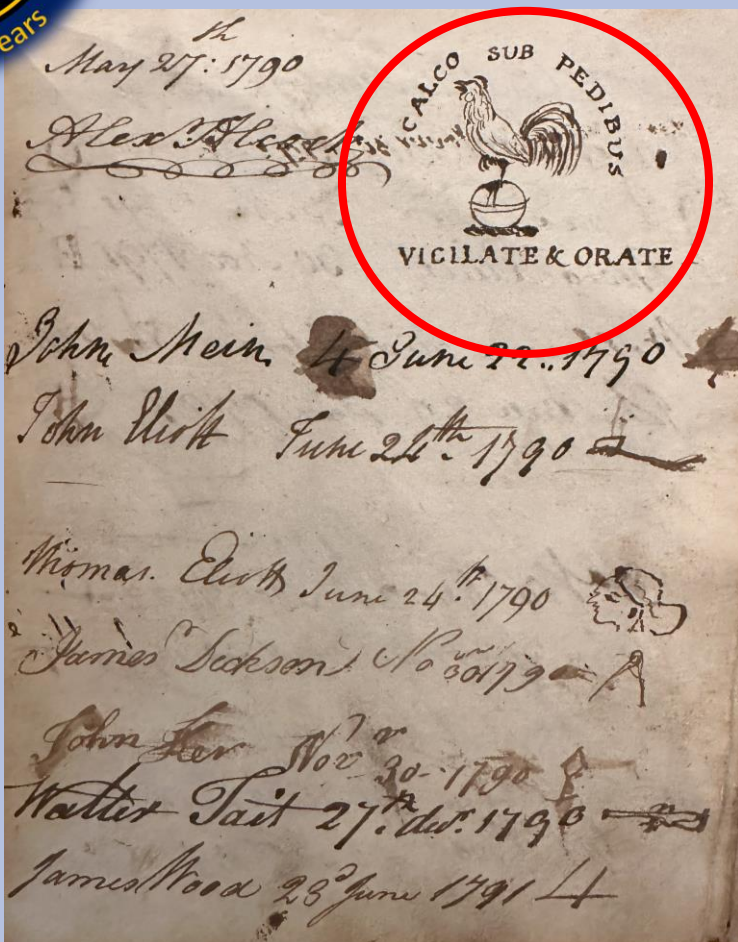 ears
May 27th: 1790
CALCO SUB PEDIBUS
VIGILATE & ORATE
John Mein 4 June 22.. 1790
John Eliott June 24th. 1790
Thomas. Eliott June 24th. 1790
James Dickson 1790
John Ker Novr 30- 1790
Walter Tait 27th. decr. 1790
James Wood 23d June 1791 4